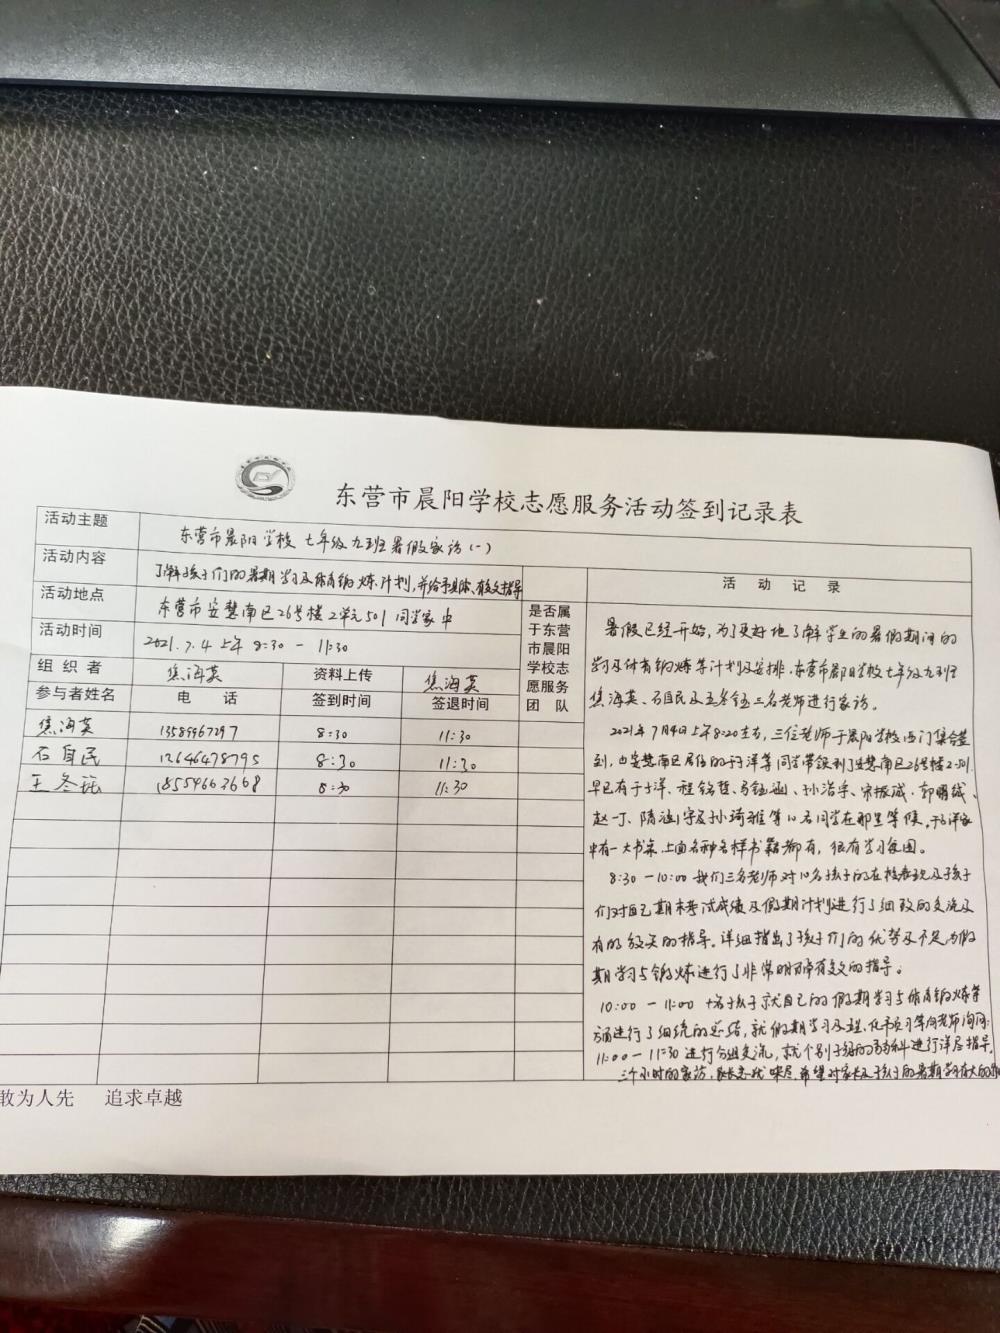 东营市晨阳学校志愿服务活动签到记录表
活动主题 东营市晨阳学校七年级九班暑假家访(一)
活动内容 了解孩子们的暑期学习及体育锻炼计划,并给予具体、有效指导
活动地点 东营市安慧南区26号楼2单元501 同学家中
活动时间 2021.7.4 上午 8:30 - 11:30
组织者 焦海英 资料上传 焦海英
参与者姓名 电话 签到时间 签退时间
是否属于东营市晨阳学校志愿服务团队
焦海英 13589967297 8:30 11:30
石自民 13646478795 8:30 11:30
王冬钰 18554663668 8:30 11:30
活动记录
暑假已经开始,为了更好地了解学生的暑假期间的
学习及体育锻炼等计划及安排,东营市晨阳学校七年级九班
焦海英、石自民及王冬钰三名老师进行家访。
2021年7月4日上午8:20左右,三位老师于晨阳学校西门集合签
到,由安慧南区居住的于子洋等同学带领到了安慧南区26号楼2-501.
早已有于子洋、程铭哲、 孙浩宇、宋振诚、郭明绒、
赵一丁、隋涵宇及孙琦雅等10名同学在那里等候,于子洋家
中有一大书架,上面各种各样书籍都有,很有学习氛围。
8:30-10:00 我们三名老师对10名孩子的在校表现及孩子
们对自己期末考试成绩及假期计划进行了细致的交流及
有的放矢的指导。详细指出了孩子们的优势及不足,为假
期学习与锻炼进行了非常明确有效的指导。
10:00-11:00 十名孩子就自己的假期学习与体育锻炼等
方面进行了细统的总结,就假期学习及 预习等向老师询问;
11:00-11:30 进行分组交流,就个别 科进行详尽指导。
三个小时的家访, 意犹未尽,希望对家长及孩子的暑期 有大的
敢为人先 追求卓越